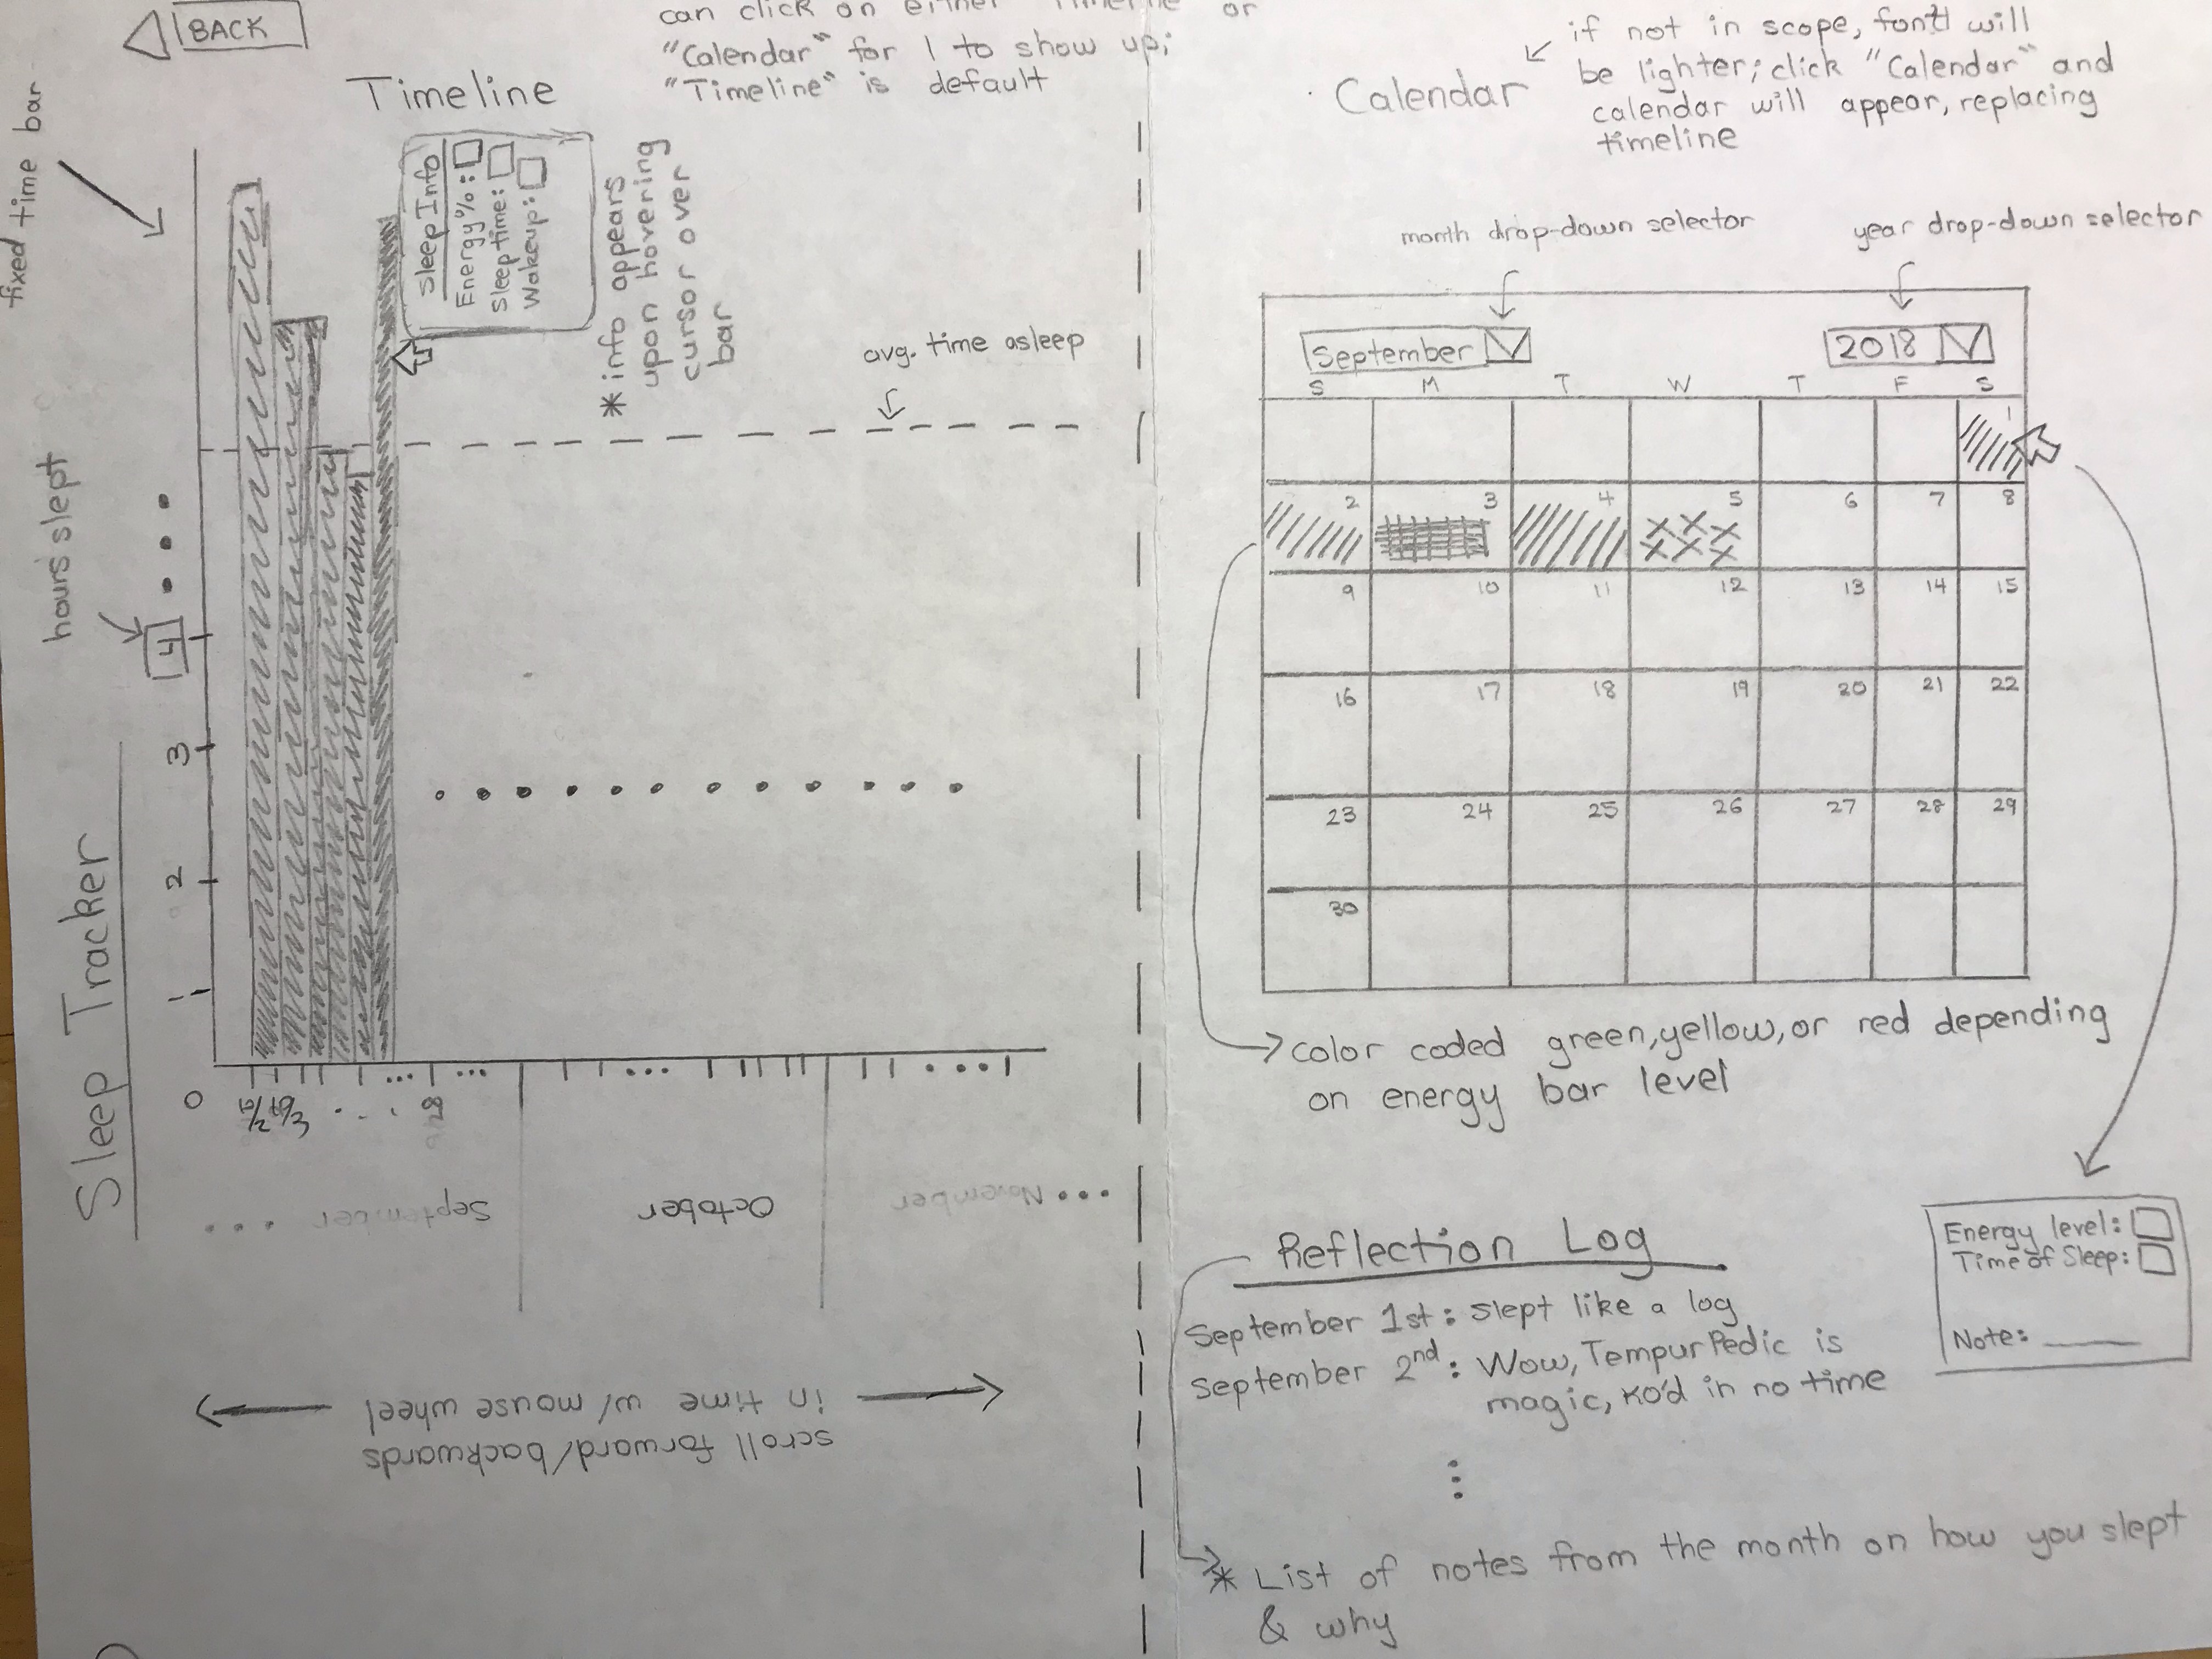 BACK
can click on either "Timeline" or
"Calendar" for 1 to show up;
"Timeline" is default
Timeline
fixed time bar
Sleep Info
Energy %:
Sleep time:
Wakeup:
* info appears
upon hovering
cursor over
bar
avg. time asleep
hours slept
4
3
2
1
0
Sleep Tracker
... September
October
November ...
scroll forward/backwards
in time w/ mouse wheel
Calendar
if not in scope, font will
be lighter; click "Calendar" and
calendar will appear, replacing
timeline
month drop-down selector
year drop-down selector
September
2018
S M T W T F S
1
2 3 4 5 6 7 8
9 10 11 12 13 14 15
16 17 18 19 20 21 22
23 24 25 26 27 28 29
30
color coded green, yellow, or red depending
on energy bar level
Energy level:
Time of Sleep:
Note:
Reflection Log
September 1st: slept like a log
September 2nd: Wow, TempurPedic is
magic, KO'd in no time
* List of notes from the month on how you slept
& why